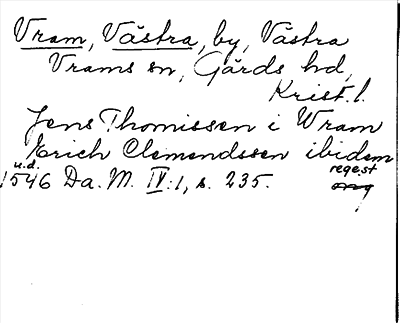 Vram, Västra, by, Västra
Vrams sn, Gärds hd,
Krist. l.
Jens Thomissen i Wram
Erich Clemendssen ibidem
u.d. regest
1546 Da. M. IV:1, s. 235. orig